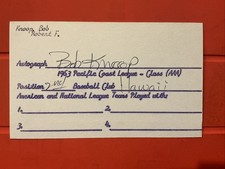 Knoop, Bob
Robert F.
Autograph Bob Knoop
1963 Pacific Coast League - Class (AAA)
Position 2nd Baseball Club Hawaii
American and National League Teams Played with:
1. 3.
2. 4.